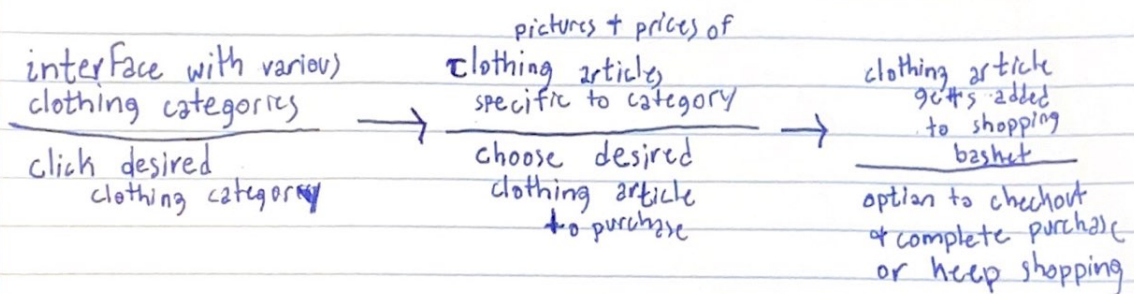 interface with various
clothing categories
click desired
clothing category
→
pictures + prices of
clothing articles
specific to category
choose desired
clothing article
to purchase
→
clothing article
getts added
to shopping
basket
option to checkout
+ complete purchase
or keep shopping